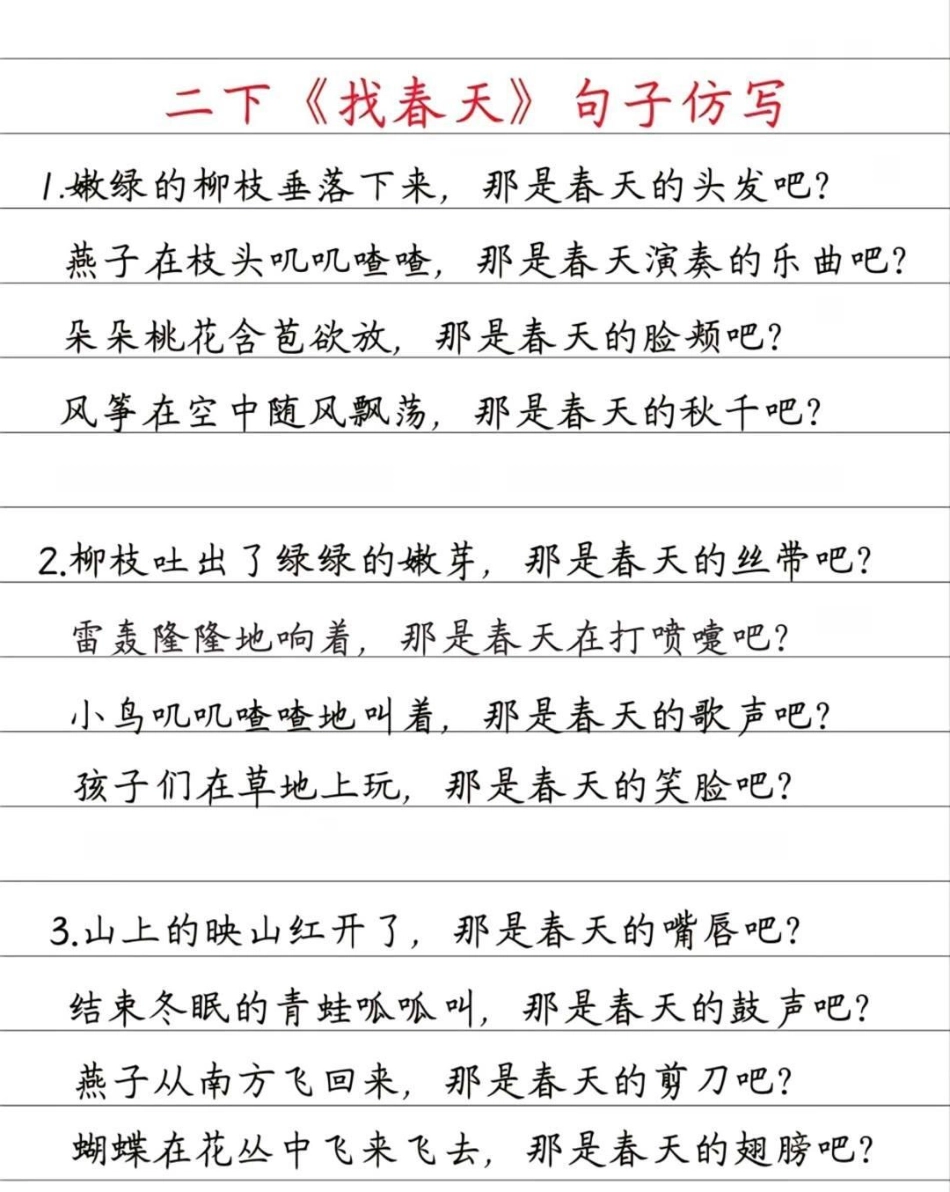 二下《找春天》句子仿写
1.嫩绿的柳枝垂落下来，那是春天的头发吧？
燕子在枝头叽叽喳喳，那是春天演奏的乐曲吧？
朵朵桃花含苞欲放，那是春天的脸颊吧？
风筝在空中随风飘荡，那是春天的秋千吧？
2.柳枝吐出了绿绿的嫩芽，那是春天的丝带吧？
雷轰隆隆地响着，那是春天在打喷嚏吧？
小鸟叽叽喳喳地叫着，那是春天的歌声吧？
孩子们在草地上玩，那是春天的笑脸吧？
3.山上的映山红开了，那是春天的嘴唇吧？
结束冬眠的青蛙呱呱叫，那是春天的鼓声吧？
燕子从南方飞回来，那是春天的剪刀吧？
蝴蝶在花丛中飞来飞去，那是春天的翅膀吧？